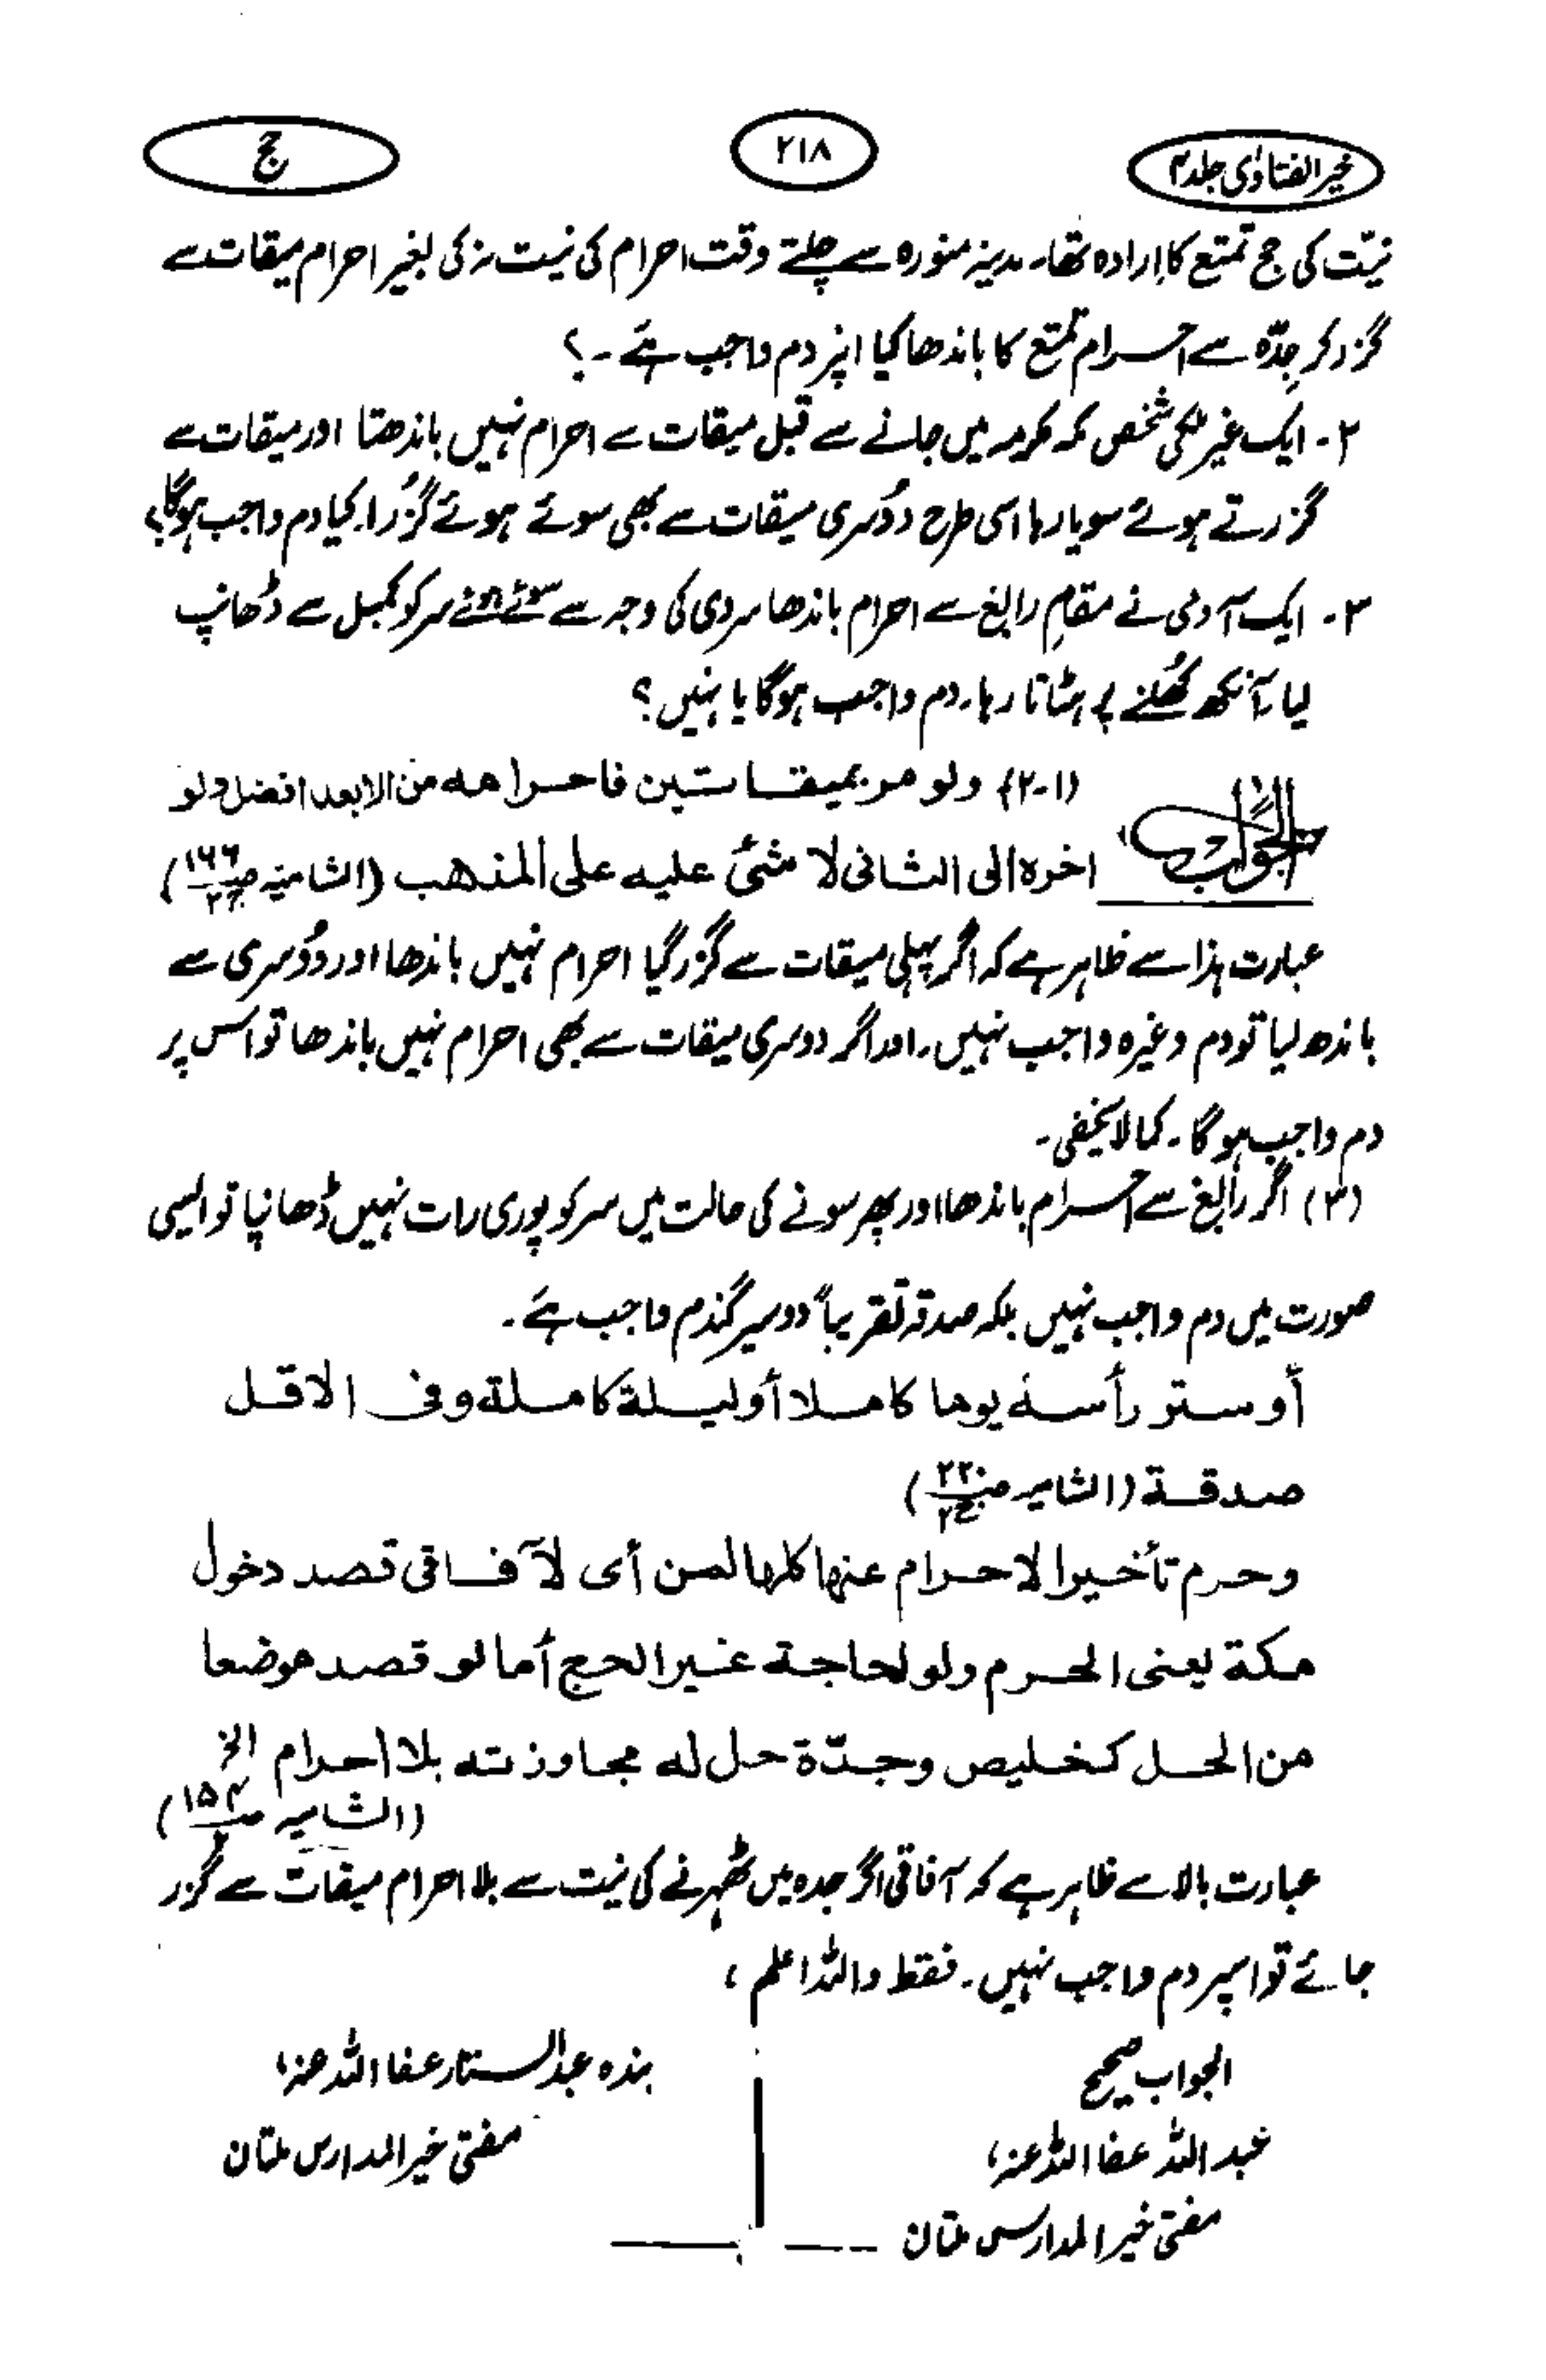 خیر الفتاوٰی جلد ۴
۲۱۸
حج
نیّت کی حج تمتع کا اِرادہ تھا۔ مدینہ منورہ سے چلتے وقت احرام کی نیت نہ کی بغیر احرام میقات سے
گزر کر جدّہ سے احرام تمتع کا باندھا کیا اپنر دم واجب ہے ۔ ؟
۲ ۔ ایک غیر ملکی شخص مکہ مکرمہ میں جانے سے قبل میقات سے احرام نہیں باندھتا اور میقات سے
گزرتے ہوئے سویا رہا اسی طرح دوُسری میقات سے بھی سوئے ہوئے گزُرا۔ کیا دم واجب ہوگا؟
۳ ۔ ایک آدمی نے مقامِ رابغ سے احرام باندھا سردی کی وجہ سے سوتے ہوئے سر کو کمبل سے ڈھانپ
لیا۔ آنکھ کھُلنے پر ہٹاتا رہا۔ دم واجب ہوگا یا نہیں ؟
الجواب
(۱-۲) ولو مر بمیقاتین فاحرامه من الابعد افضل ولو
اخره الی الثانی لا شئ علیه علی المذهب (الشامیة ص ۱۶۶ ج ۲)
عبارت ہذا سے ظاہر ہے کہ اگر پہلی میقات سے گزر گیا احرام نہیں باندھا اور دوُسری سے
باندھ لیا تو دم وغیرہ واجب نہیں ۔ اور اگر دوسری میقات سے بھی احرام نہیں باندھا تو اس پر
دم واجب ہوگا ۔ کما لا یخفی ۔
(۳) اگر رابغ سے احرام باندھا اور پھر سونے کی حالت میں سر کو پوری رات نہیں ڈھانپا تو ایسی
صورت میں دم واجب نہیں بلکہ صدقہ تقریباً دو سیر گندم واجب ہے ۔
أو ستر رأسه یوما کاملا أو لیلة کاملة وفی الاقل
صدقة (الشامیہ ص ۲۲۰ ج ۲)
وحرم تأخیر الاحرام عنها کلها لمن أی لآفاقی قصد دخول
مکة یعنی الحرم ولو لحاجة غیر الحج أما لو قصد موضعا
من الحل کخلیص وجدّة حل له مجاوزته بلا احرام الخ
(الشامیہ ص ۱۵۴ ج ۲)
عبارت بالا سے ظاہر ہے کہ آفاقی اگر جدہ میں ٹھہرنے کی نیت سے بلا احرام میقات سے گزر
جائے تو اسپر دم واجب نہیں ۔ فقط واللہ اعلم ،
الجواب صحیح
عبد اللہ عفا اللہ عنہ ،
مفتی خیر المدارس ملتان
بندہ عبد الستار عفا اللہ عنہ ،
مفتی خیر المدارس ملتان